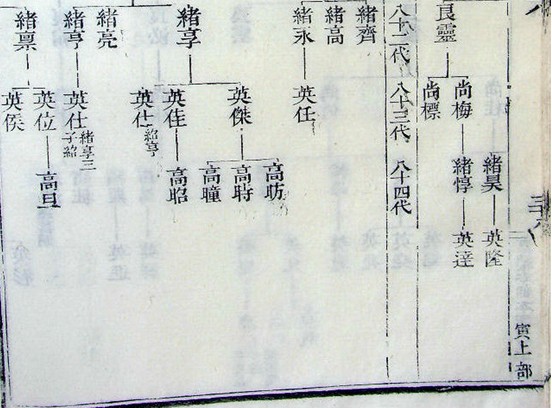 寅上部
良靈
尚梅
緒昊
英隆
緒惇
英達
尚標
八十二代 八十三代 八十四代
緒齊
緒高
緒永
英任
緒享
英傑
高昉
高時
高瞳
英佳
高昭
英仕 紹亨
緒亮
緒亨
英仕 緒享三子紹
緒禀
英位
高旦
英候